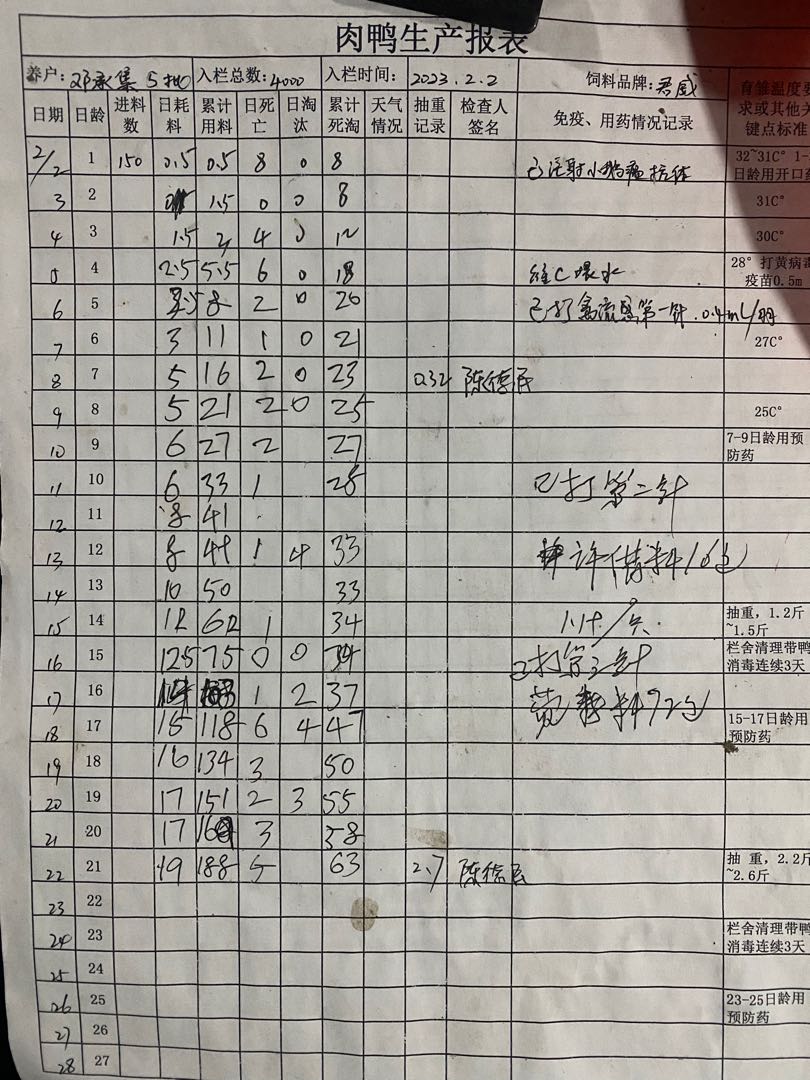 肉鸭生产报表
养户: 邓承集 5批 入栏总数: 4000 入栏时间: 2023.2.2 饲料品牌: 君威
日期 日龄 进料数 日耗料 累计用料 日死亡 日淘汰 累计死淘 天气情况 抽重记录 检查人签名 免疫、用药情况记录 育雏温度要求或其他关键点标准
2/2 1 150 0.5 0.5 8 0 8 已注射小鸭病抗体 32~31C° 1-日龄用开口药
3 2 1.5 0 0 8 31C°
4 3 1.5 4 0 12 30C°
5 4 2.5 5.5 6 0 18 维C喂水 28° 打黄病毒疫苗0.5m
6 5 2.5 8 2 0 20 已打禽流感第一针.0.4mL/羽
7 6 3 11 1 0 21 27C°
8 7 5 16 2 0 23 0.32 陈德民
9 8 5 21 2 0 25 25C°
10 9 6 27 2 27 7-9日龄用预防药
11 10 6 33 1 28 已打第二针
12 11 8 41
13 12 8 49 1 4 33 料16包
14 13 10 50 33
15 14 12 62 1 34 抽重，1.2斤~1.5斤
16 15 12.5 75 0 0 34 已打第三针 栏舍清理带鸭消毒连续3天
17 16 1 2 37 料92包
18 17 15 118 6 4 47 15-17日龄用预防药
19 18 16 134 3 50
20 19 17 151 2 3 55
21 20 17 3 58
22 21 19 188 5 63 2.7 陈德民 抽 重，2.2斤~2.6斤
23 22
24 23 栏舍清理带鸭消毒连续3天
25 24
26 25 23-25日龄用预防药
27 26
28 27